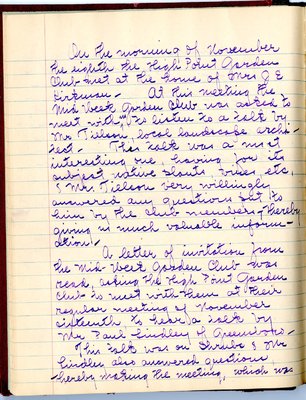 On the morning of November
the eighth the High Point Garden
Club met at the home of Mrs O E
Kirkman - At this meeting the
Mid Week Garden Club was asked to
meet with us to listen to a talk by
Mr Tielson, local landscape archi-
tect - This talk was a most
interesting one, having for its
subject native plants, vines, etc.
& Mr. Tielson very willingly
answered any questions put to
him by the Club members - thereby
giving us much valuable inform-
ation!
A letter of invitation from
the Mid-Week Garden Club was
read, asking the High Point Garden
Club to meet with them at their
regular meeting of November
sixteenth to hear a talk by
Mr. Paul Lindley of Greensboro -
This talk was on Shrubs & Mr
Lindley also answered questions
thereby making the meeting, which was